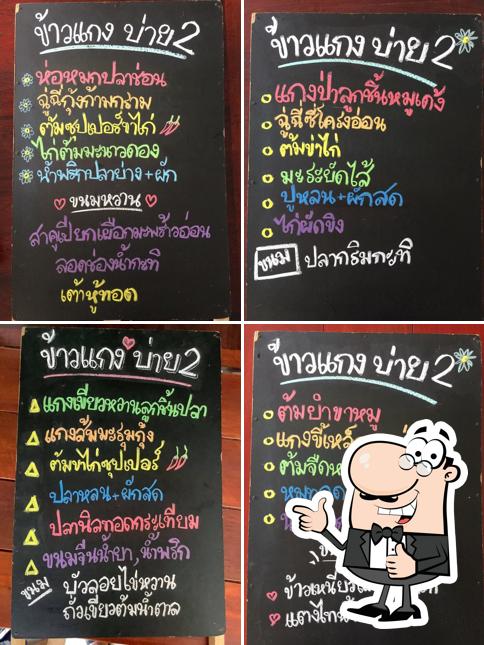 ข้าวแกง บ่าย 2
ห่อหมกปลาช่อน
ฉู่ฉี่กุ้งก้ามกราม
ต้มซุปเปอร์ขาไก่
ไก่ต้มมะนาวดอง
น้ำพริกปลาย่าง+ผัก
ขนมหวาน
สาคูเปียกเผือกมะพร้าวอ่อน
ลอดช่องน้ำกะทิ
เต้าหู้ทอด
ข้าวแกง บ่าย 2
แกงป่าลูกชิ้นหมูเด้ง
ฉู่ฉี่ซี่โครงอ่อน
ต้มข่าไก่
มะระยัดไส้
ปูหลน+ผักสด
ไก่ผัดขิง
ขนม ปลากริมกะทิ
ข้าวแกง บ่าย 2
แกงเขียวหวานลูกชิ้นปลา
แกงส้มมะรุมกุ้ง
ต้มขาไก่ซุปเปอร์
ปลาหลน+ผักสด
ปลานิลทอดกระเทียม
ขนมจีนน้ำยา, น้ำพริก
ขนม บัวลอยไข่หวาน
ถั่วเขียวต้มน้ำตาล
ข้าวแกง บ่าย 2
ต้มยำขาหมู
แกงขี้เหล็
ต้มจืด
ข้าวเหนียว
แตงไทย